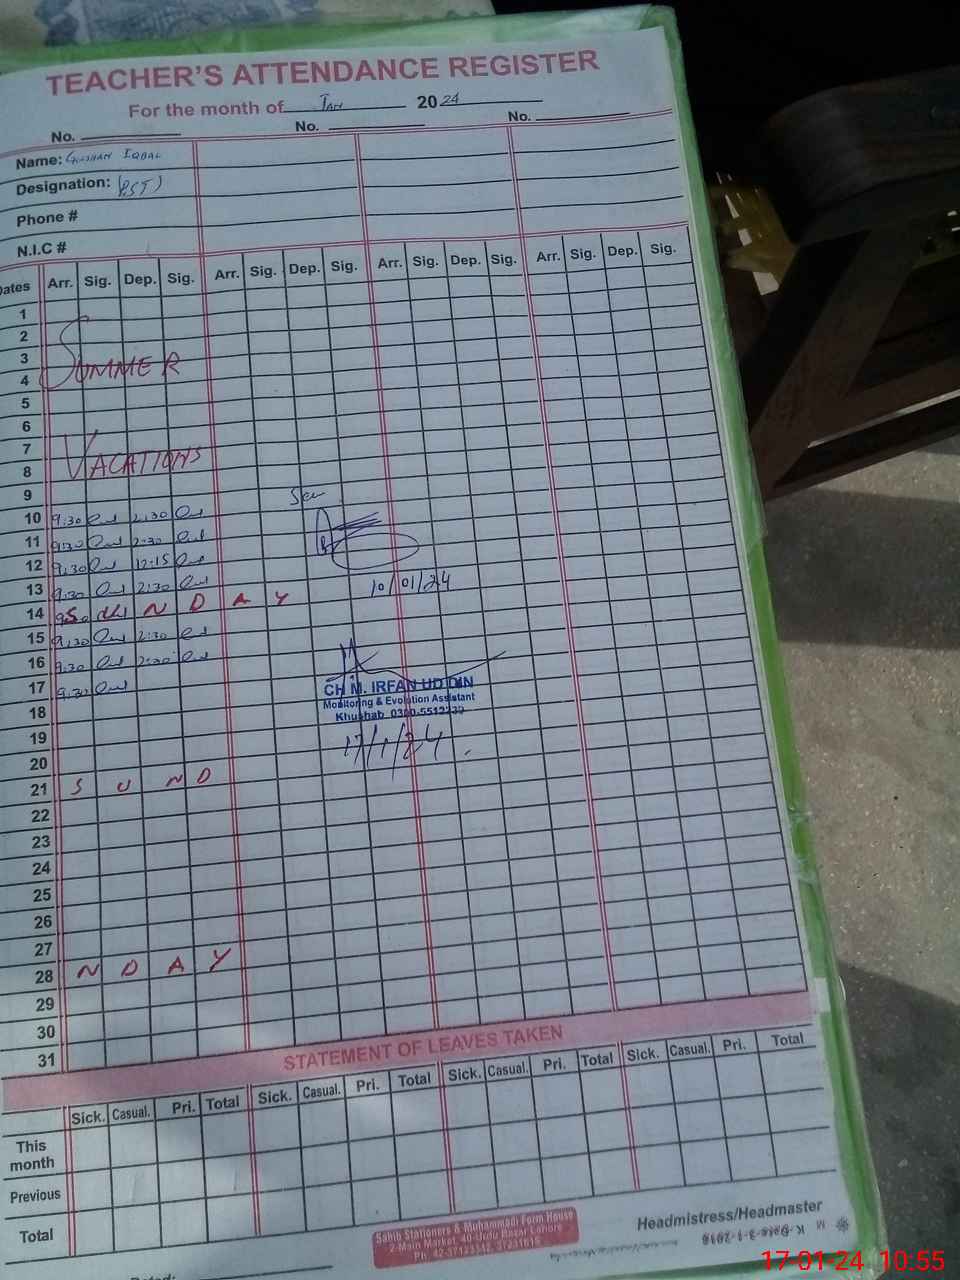 TEACHER'S ATTENDANCE REGISTER
For the month of Jan 2024
No. No. No.
Name: Gulshan Iqbal
Designation: (PST)
Phone #
N.I.C #
Dates Arr. Sig. Dep. Sig. Arr. Sig. Dep. Sig. Arr. Sig. Dep. Sig. Arr. Sig. Dep. Sig.
1
2
3 SUMMER
4
5
6
7 VACATIONS
8
9 Seen
10 9:30 2:30
11 9:30 2:30
12 9:30 12:15
13 9:30 2:30 10/01/24
14 SUNDAY
15 9:30 2:30
16 9:30 2:30
17 9:30
CH M. IRFAN UD DIN
Monitoring & Evolution Assistant
18 Khushab 0300-5512239
19 17/1/24
20
21 SUND
22
23
24
25
26
27
28 NDAY
29
30
31
STATEMENT OF LEAVES TAKEN
Sick. Casual. Pri. Total Sick. Casual. Pri. Total Sick. Casual. Pri. Total Sick. Casual. Pri. Total
This month
Previous
Total
Headmistress/Headmaster
Sahib Stationers & Muhammadi Form House
2-Main Market, 40-Urdu Bazar Lahore
Ph: 42-37123342, 37231815
Dated:
17-01-24 10:55